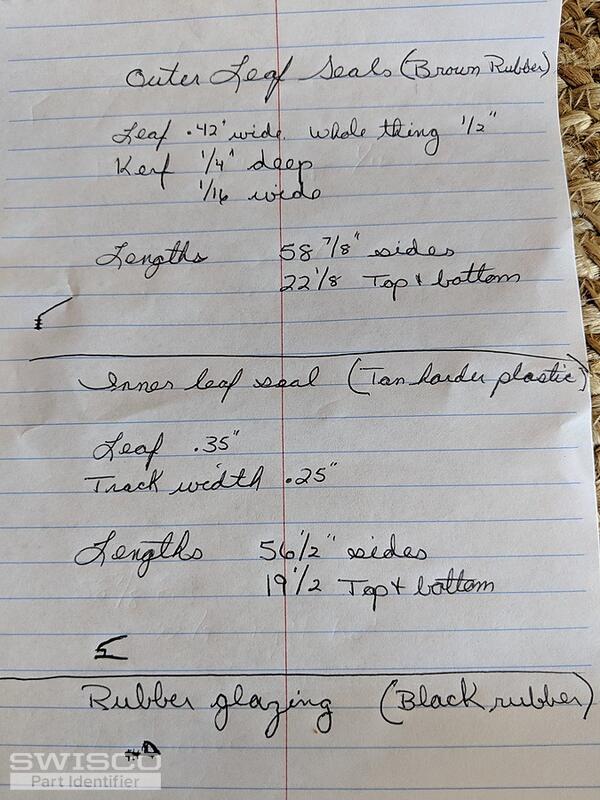 Outer Leaf Seals (Brown Rubber)
Leaf .42" wide whole thing 1/2"
Kerf 1/4" deep
1/16 wide
Lengths 58 7/8" sides
22 1/8 Top & bottom
Inner leaf seal (Tan harder plastic)
Leaf .35"
Track width .25"
Lengths 56 1/2" sides
19 1/2 Top & bottom
Rubber glazing (Black rubber)
SWISCO
Part Identifier